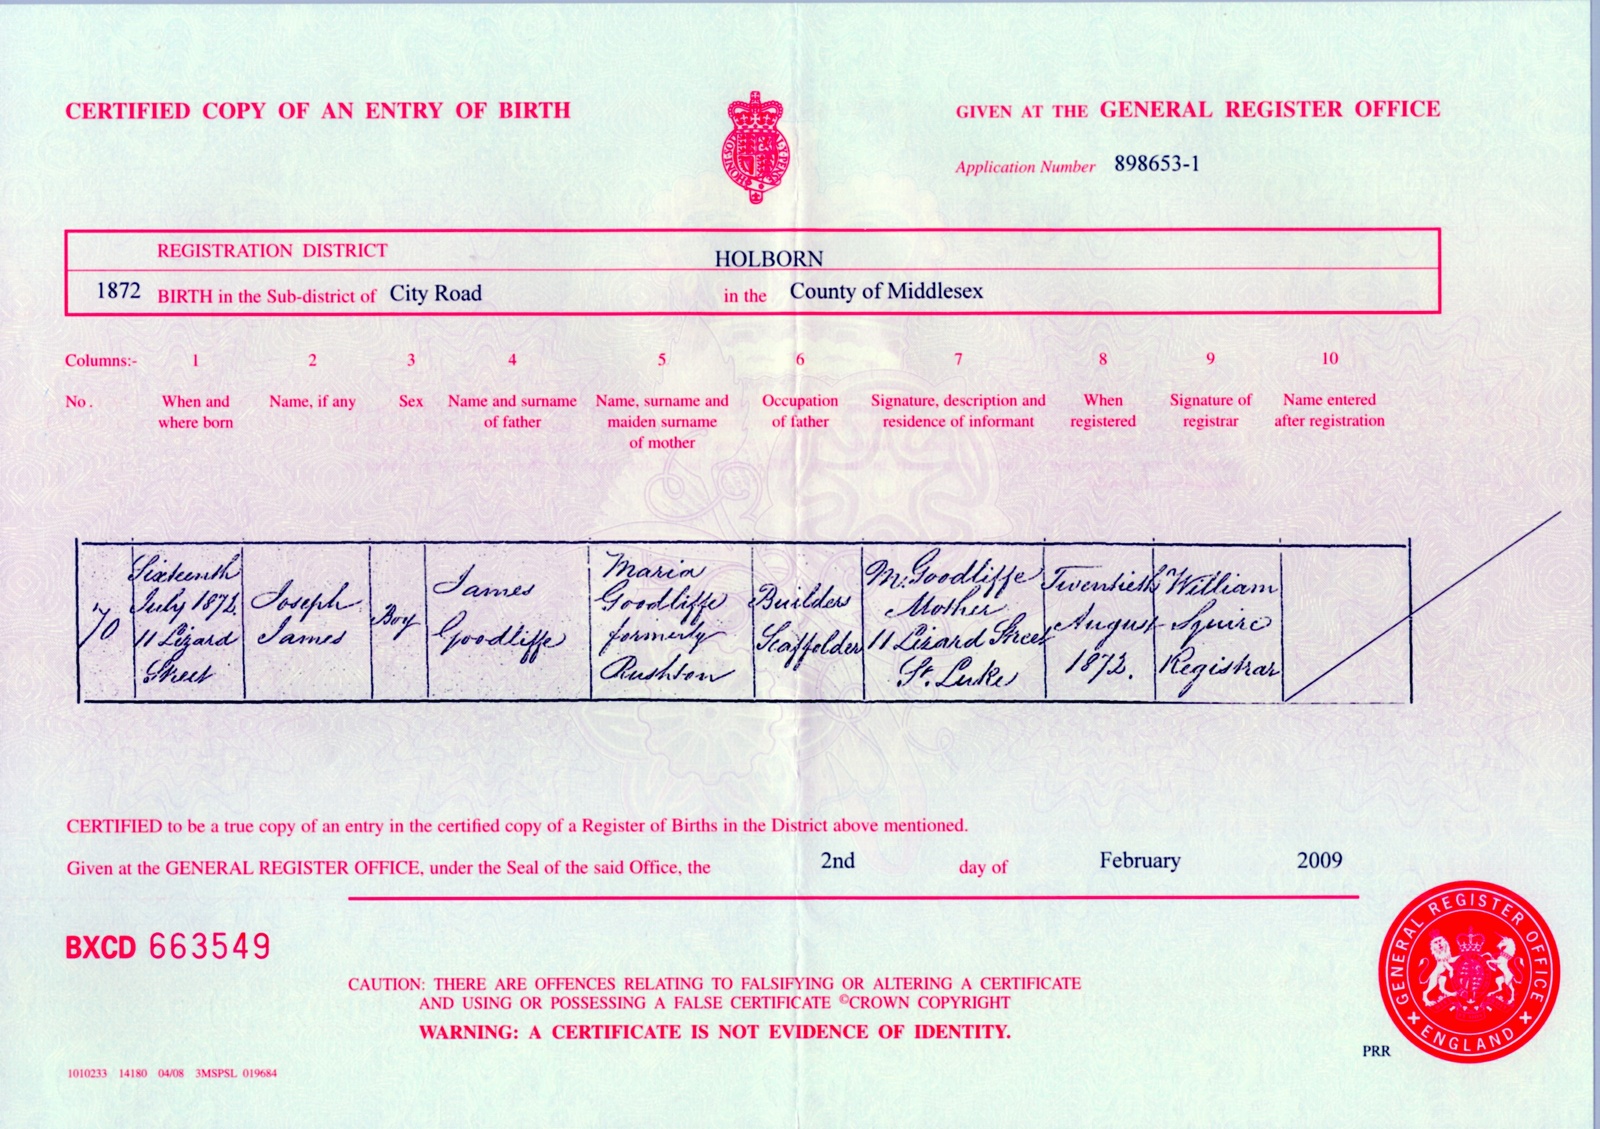 CERTIFIED COPY OF AN ENTRY OF BIRTH
GIVEN AT THE GENERAL REGISTER OFFICE
Application Number 898653-1
REGISTRATION DISTRICT HOLBORN
1872 BIRTH in the Sub-district of City Road in the County of Middlesex
Columns:- 1 2 3 4 5 6 7 8 9 10
No. When and where born Name, if any Sex Name and surname of father Name, surname and maiden surname of mother Occupation of father Signature, description and residence of informant When registered Signature of registrar Name entered after registration
70
Sixteenth
July 1872
11 Lizard
Street
Joseph
James
Boy
James
Goodliffe
Maria
Goodliffe
formerly
Rushton
Builders
Scaffolder
M. Goodliffe
Mother
11 Lizard Street
St. Luke
Twentieth
August
1872.
William
Squire
Registrar
CERTIFIED to be a true copy of an entry in the certified copy of a Register of Births in the District above mentioned.
Given at the GENERAL REGISTER OFFICE, under the Seal of the said Office, the 2nd day of February 2009
BXCD 663549
CAUTION: THERE ARE OFFENCES RELATING TO FALSIFYING OR ALTERING A CERTIFICATE
AND USING OR POSSESSING A FALSE CERTIFICATE ©CROWN COPYRIGHT
WARNING: A CERTIFICATE IS NOT EVIDENCE OF IDENTITY.
GENERAL REGISTER OFFICE
ENGLAND
PRR
1010233 14180 04/08 3MSPSL 019684